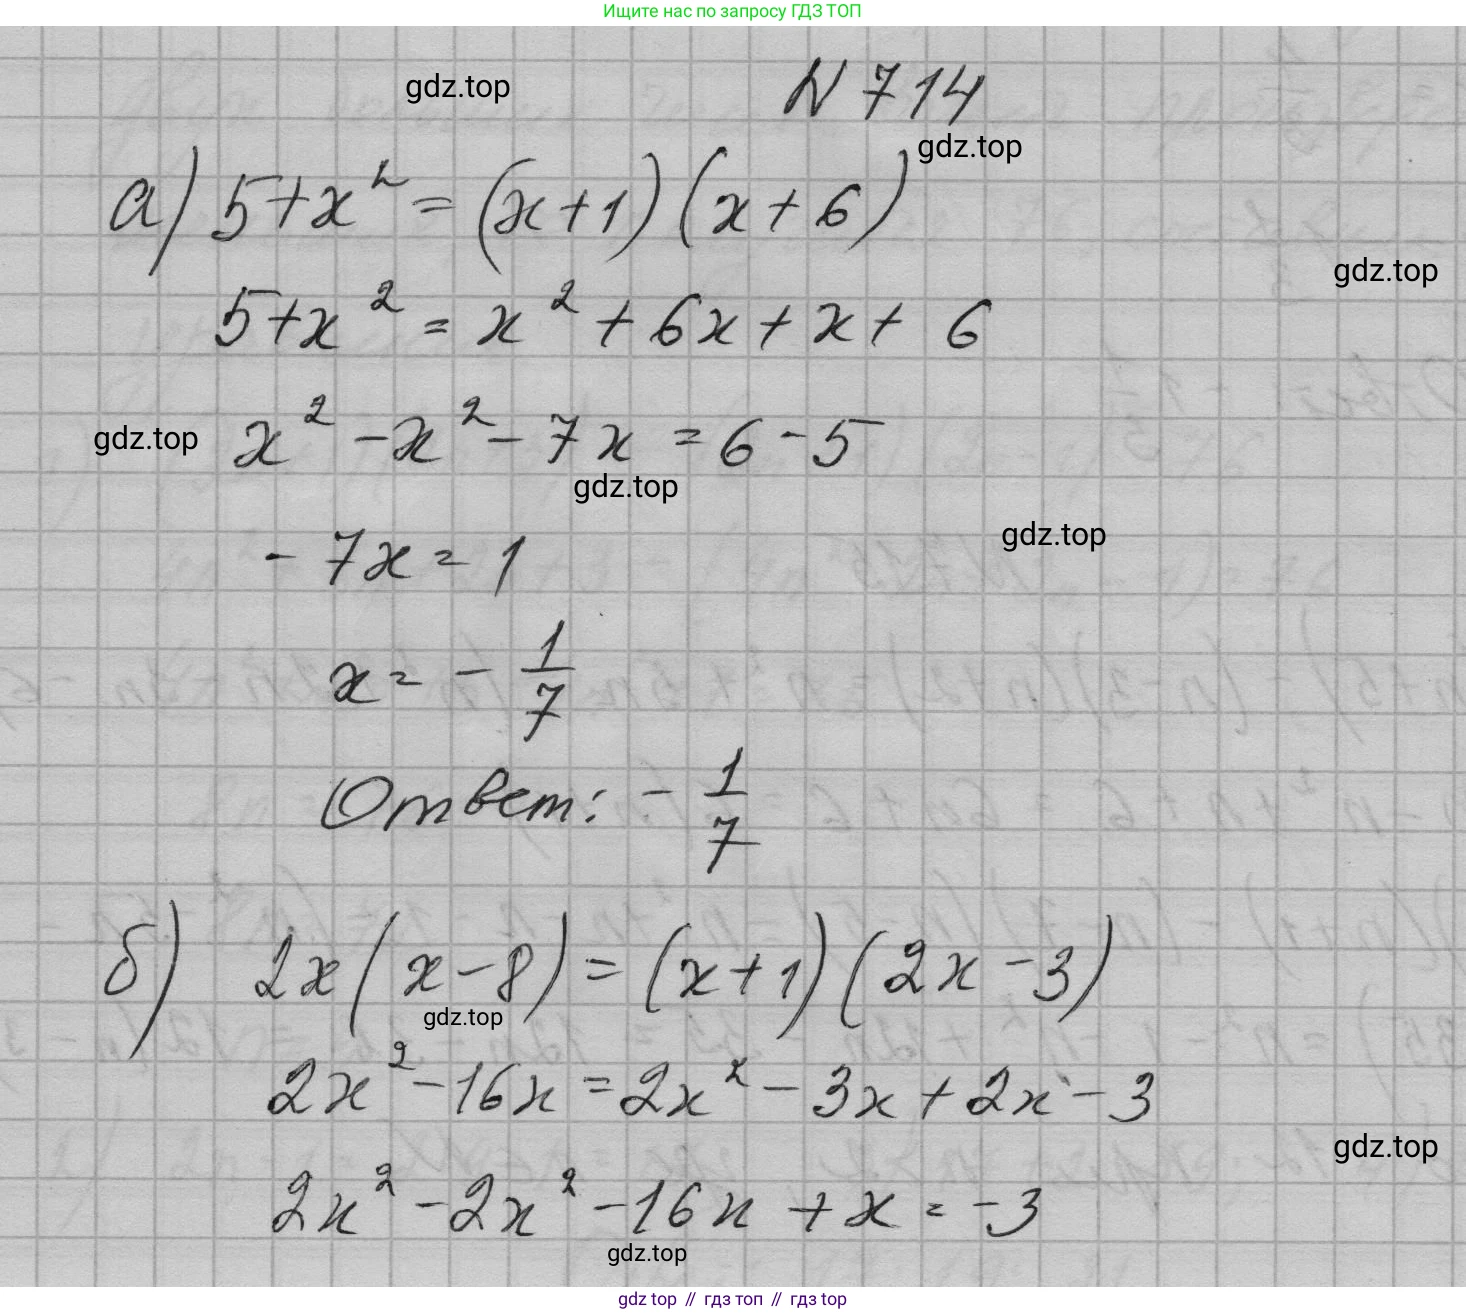 Ищите нас по запросу ГДЗ ТОП
gdz.top
N 714
gdz.top
а) 5+x² = (x+1)(x+6)
gdz.top
5+x² = x² + 6x + x + 6
gdz.top
x² - x² - 7x = 6 - 5
gdz.top
gdz.top
- 7x = 1
x = - 1/7
Ответ: - 1/7
б) 2x(x-8) = (x+1)(2x-3)
gdz.top
2x² - 16x = 2x² - 3x + 2x - 3
gdz.top
2x² - 2x² - 16x + x = -3
gdz.top
gdz top // гдз топ // гдз top